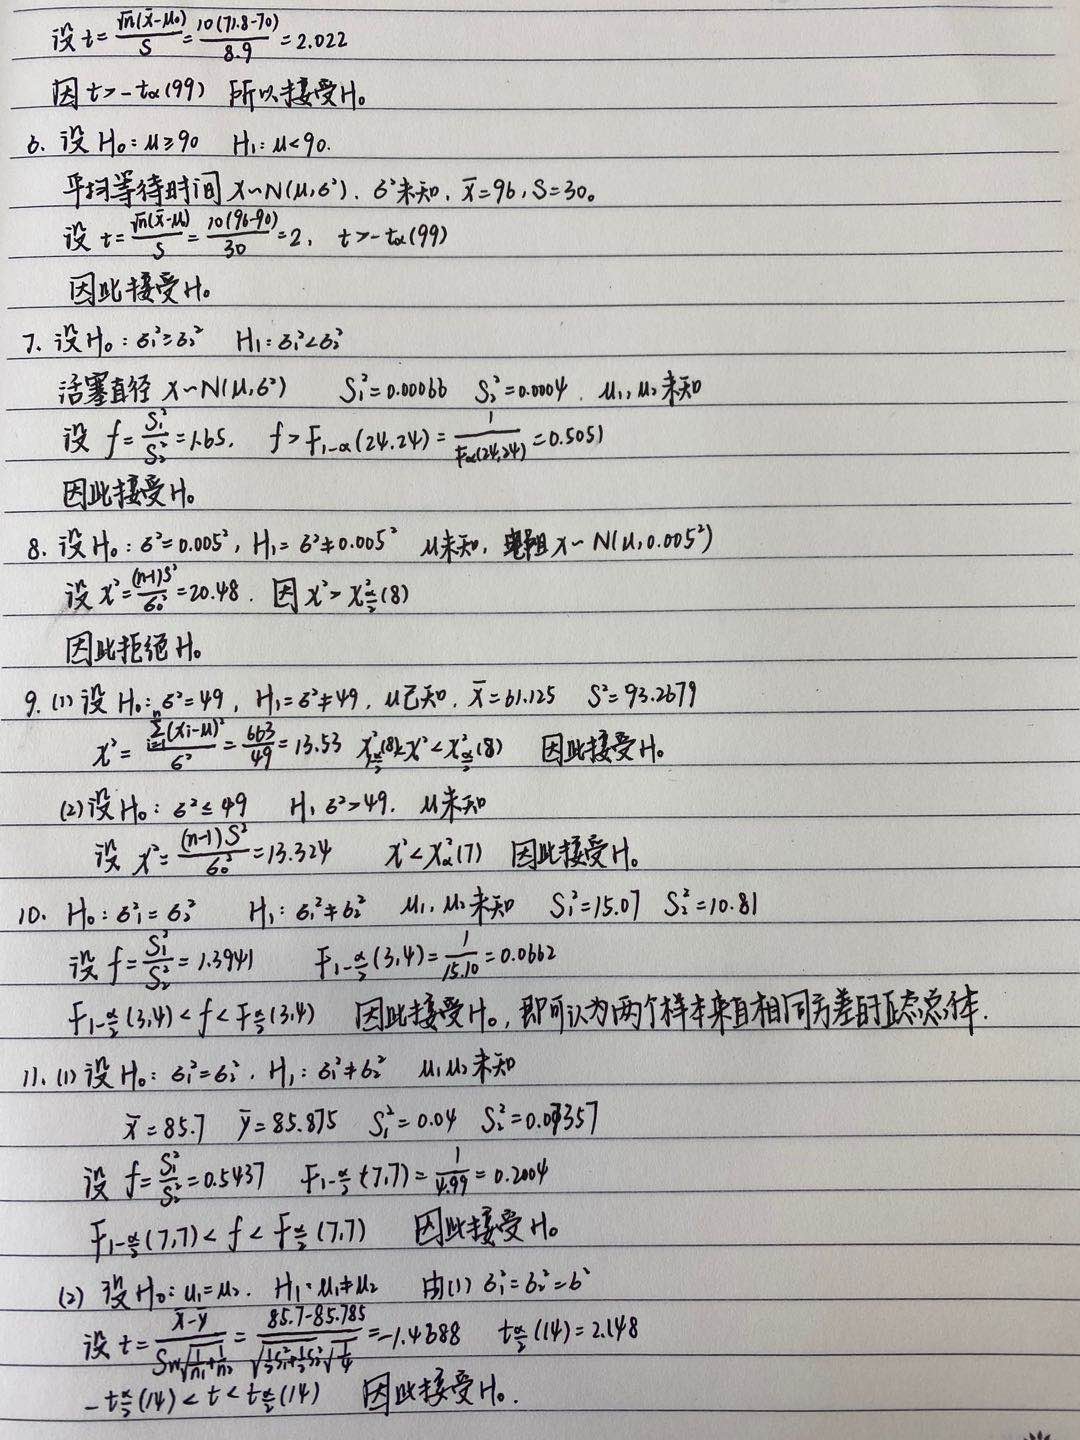 设 t = √n(x̄-μ₀)/S = 10(71.8-70)/8.9 = 2.022
因 t > -tα(99) 所以接受H₀
6. 设 H₀: μ≥90 H₁: μ<90.
平均等待时间 X~N(μ,σ²). σ²未知, x̄=96, S=30。
设 t = √n(x̄-μ₀)/S = 10(96-90)/30 = 2, t > -tα(99)
因此接受H₀
7. 设H₀: σ₁²≥σ₂² H₁: σ₁²<σ₂²
活塞直径 X~N(μ,σ²) S₁²=0.00066 S₂²=0.0004. μ₁,μ₂未知
设 f = S₁²/S₂² = 1.65. f > F₁₋α(24,24) = 1/Fα(24,24) = 0.5051
因此接受H₀
8. 设H₀: σ²=0.005², H₁= σ²≠0.005² μ未知, 电阻X~N(μ,0.005²)
设 χ² = (n-1)S²/σ₀² = 20.48. 因 χ² > χ²α/2(8)
因此拒绝H₀
9. (1) 设 H₀: σ²=49, H₁= σ²≠49, μ已知. x̄=61.125 S²=93.2679
χ² = Σⁿᵢ₌₁(xᵢ-μ)²/σ² = 663/49 = 13.53 χ²₁₋α/2(8)<χ²<χ²α/2(8) 因此接受H₀
(2) 设H₀: σ²≤49 H₁ σ²>49. μ未知
设 χ² = (n-1)S²/σ₀² = 13.324 χ²<χ²α(7) 因此接受H₀
10. H₀: σ₁²=σ₂² H₁: σ₁²≠σ₂² μ₁, μ₂未知 S₁²=15.07 S₂²=10.81
设 f = S₁²/S₂² = 1.3941 F₁₋α/2(3,4) = 1/15.10 = 0.0662
F₁₋α/2(3,4) < f < Fα/2(3,4) 因此接受H₀, 即可认为两个样本来自相同方差的正态总体.
11. (1) 设 H₀: σ₁²=σ₂². H₁: σ₁²≠σ₂² μ₁μ₂未知
x̄=85.7 ȳ=85.875 S₁²=0.04 S₂²=0.07357
设 f = S₁²/S₂² = 0.5437 F₁₋α/2(7,7) = 1/4.99 = 0.2004
F₁₋α/2(7,7) < f < Fα/2(7,7) 因此接受H₀
(2) 设H₀: μ₁=μ₂. H₁: μ₁≠μ₂ 由(1) σ₁²=σ₂²=σ²
设 t = (x̄-ȳ)/(Sw√(1/n₁+1/n₂)) = (85.7-85.785)/(√(½S₁²+½S₂²)√¼) = -1.4688 tα/2(14)=2.148
-tα/2(14) < t < tα/2(14) 因此接受H₀.